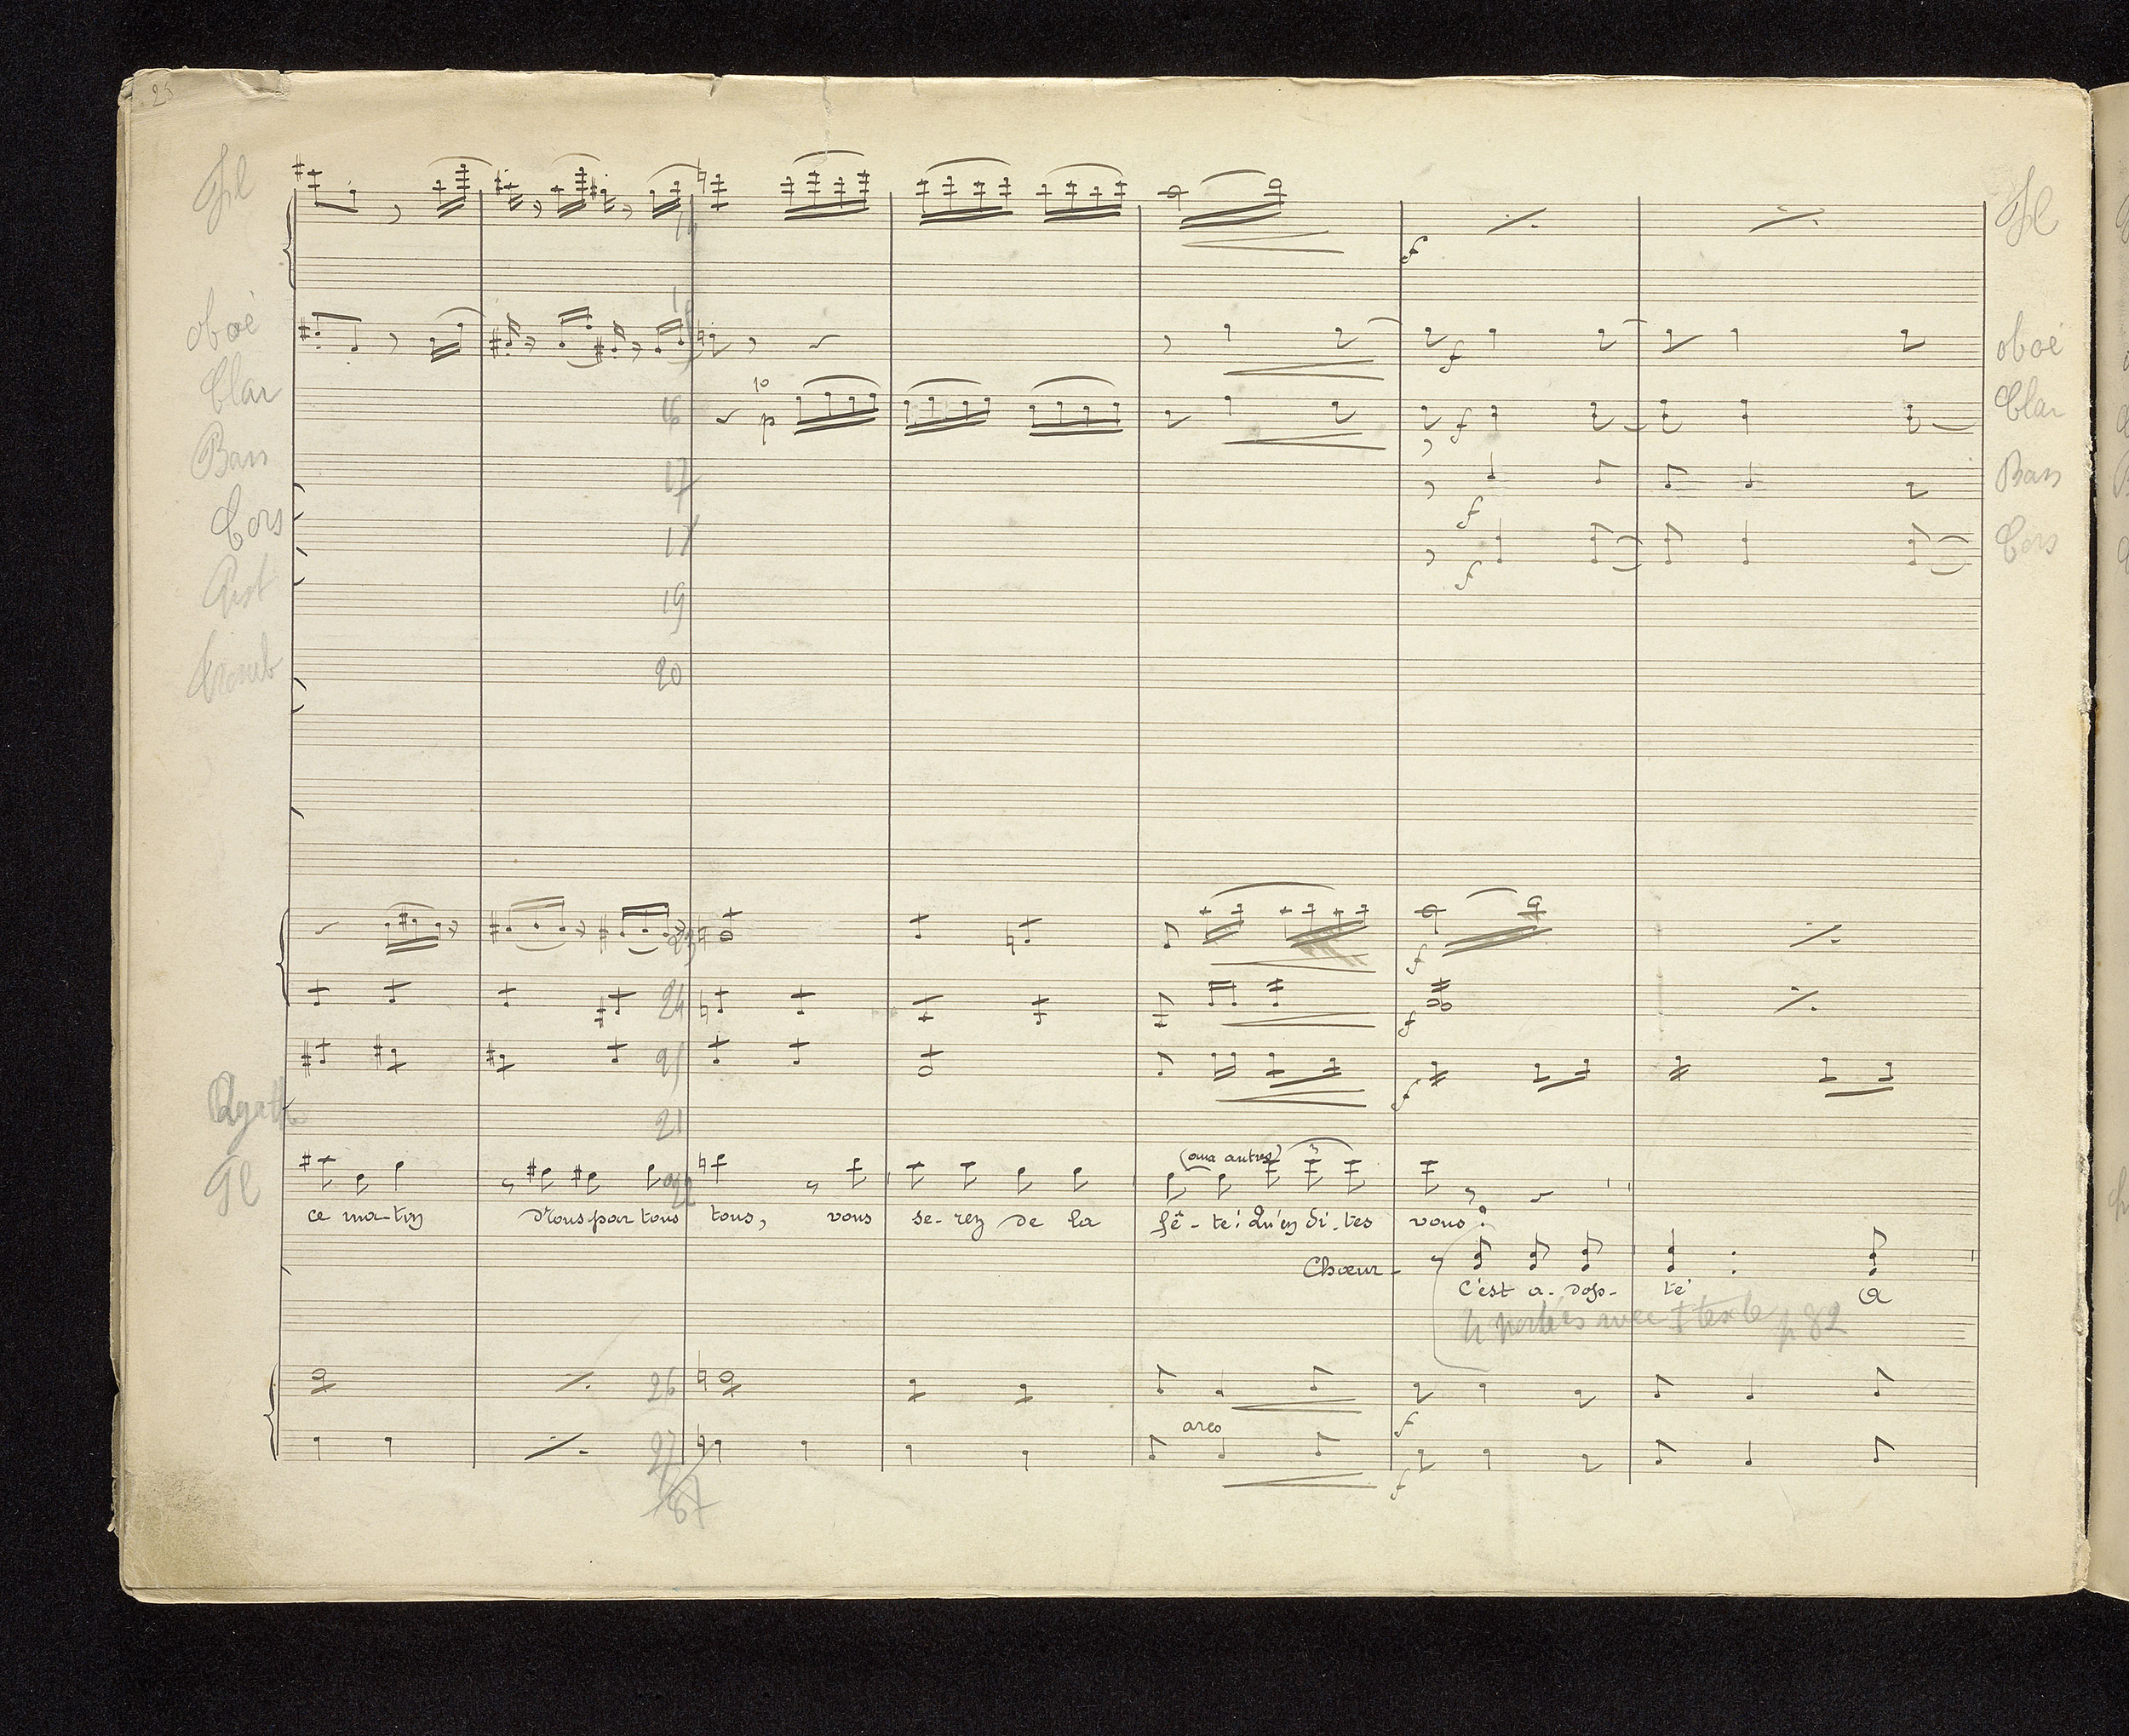 25
Fl Fl
14
oboë oboë
1º
Clar 16 p Clar
f
Bas 17 Bas
Cors 18 f Cors
Pist 19 f
Tromb 20
23
f
24
f
25
f
Agathe 21
(aux autres)
Fl 22
ce ma-tin par tous tous, vous se-rez de la fê-te! Qu'en di-tes vous?
Chœur -
C'est a-dop-té A
4 portées avec texte p 82
26
arco f
27
f
87